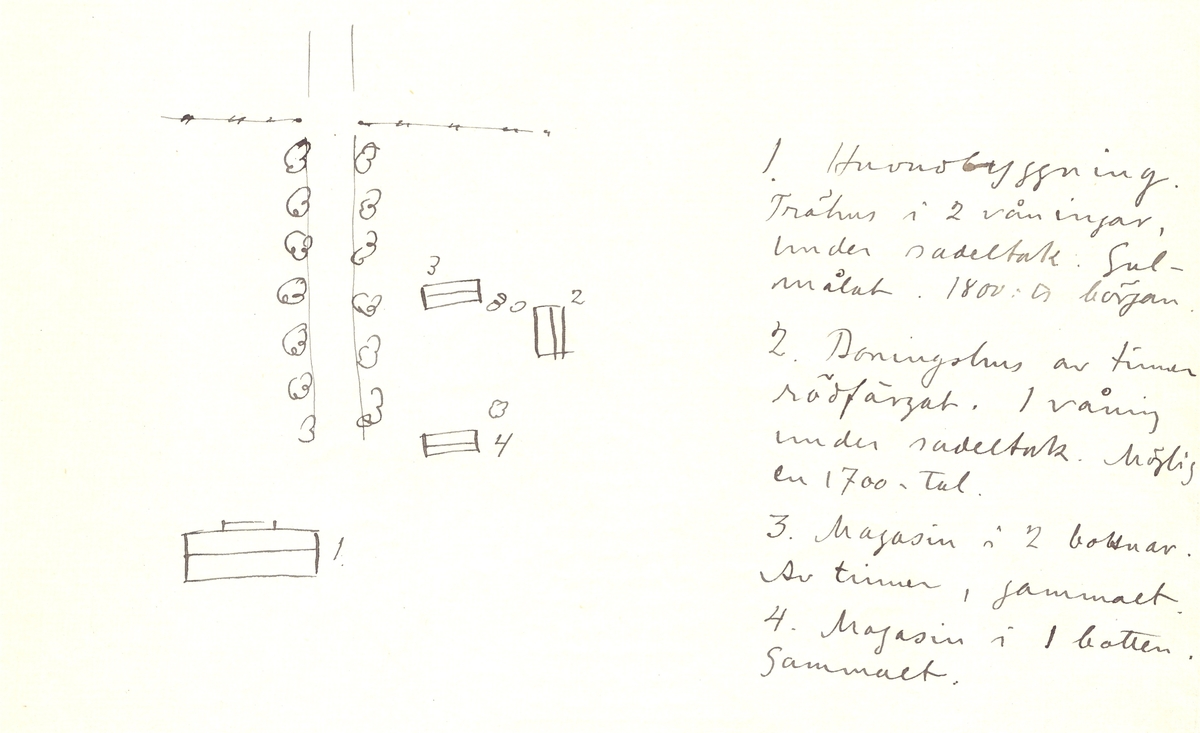 3
2
4
1.
1. Huvudbyggning.
Trähus i 2 våningar,
under sadeltak. Gul-
målat. 1800:s början.
2. Boningshus av timer
rödfärgat. 1 våning
under sadeltak. Möglig
en 1700-tal.
3. Magasin i 2 bottnar.
Av timer, gammalt.
4. Magasin i 1 botten.
Gammalt.